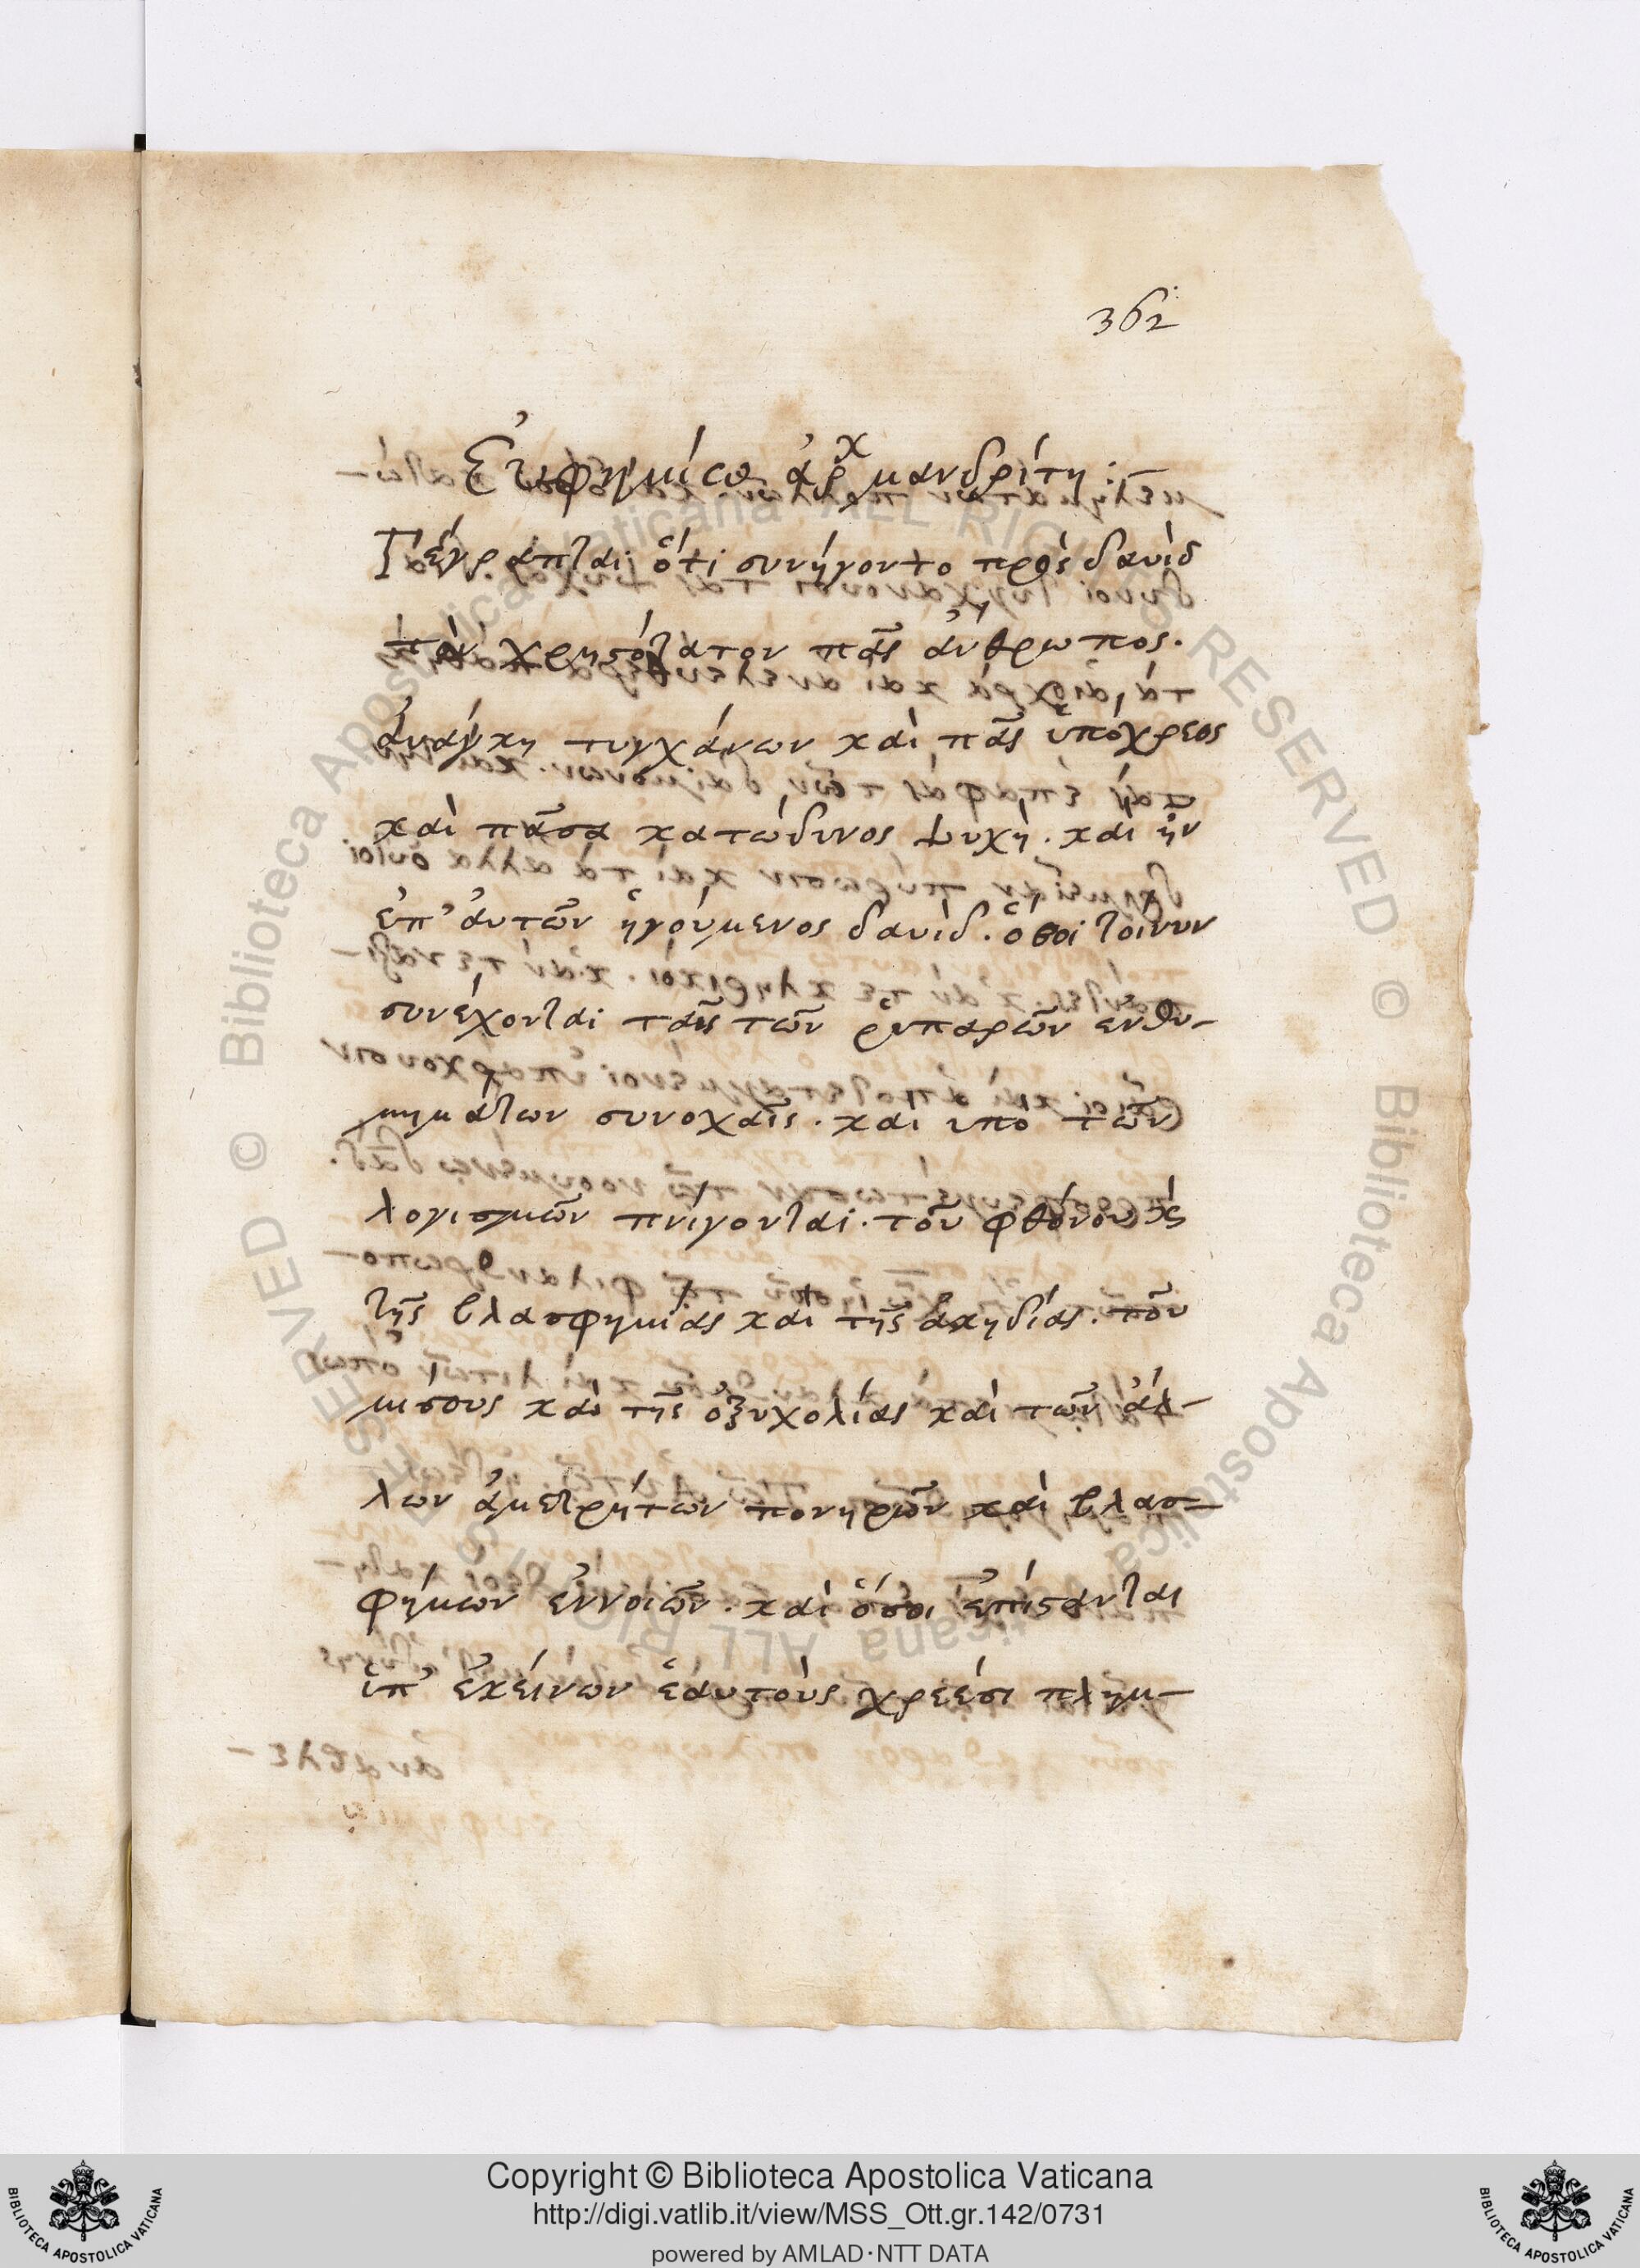 362
Εὐφημίω ἀρχμανδρίτη :–
Γέγραπται ὅτι συνήγοντο πρὸς δαυὶδ
τὸν χρηστότατον πᾶς ἄνθρωπος.
ἀνάγκη τυγχάνων καὶ πᾶς ὑπόχρεος
καὶ πᾶσα κατώδινος ψυχή. καὶ ἦν
ἐπ' ἀυτῶν ἡγούμενος δαυίδ. ὅσοι τοίνυν
συνέχονται ταῖς τῶν ῥυπαρῶν ενθυ-
μημάτων συνοχαῖς. καὶ υπὸ τῶν
λογισμῶν πνίγονται. τοῦ φθόνου κ̀ς
τῆς βλασφημίας καὶ τῆς ἀκηδίας. τοῦ
μίσους καὶ τῆς ὀξυχολίας καὶ τῶν ἀλ-
λων ἀμετρήτων πονηρῶν καὶ βλασ-
φήμων ἐννοιῶν. καὶ ὅσοι ἐπίστανται
ὑπ' ἐκείνων ἑαυτοὺς χρεέσι πλημ-
Copyright © Biblioteca Apostolica Vaticana
http://digi.vatlib.it/view/MSS_Ott.gr.142/0731
powered by AMLAD·NTT DATA
BIBLIOTECA APOSTOLICA VATICANA
BIBLIOTECA APOSTOLICA VATICANA